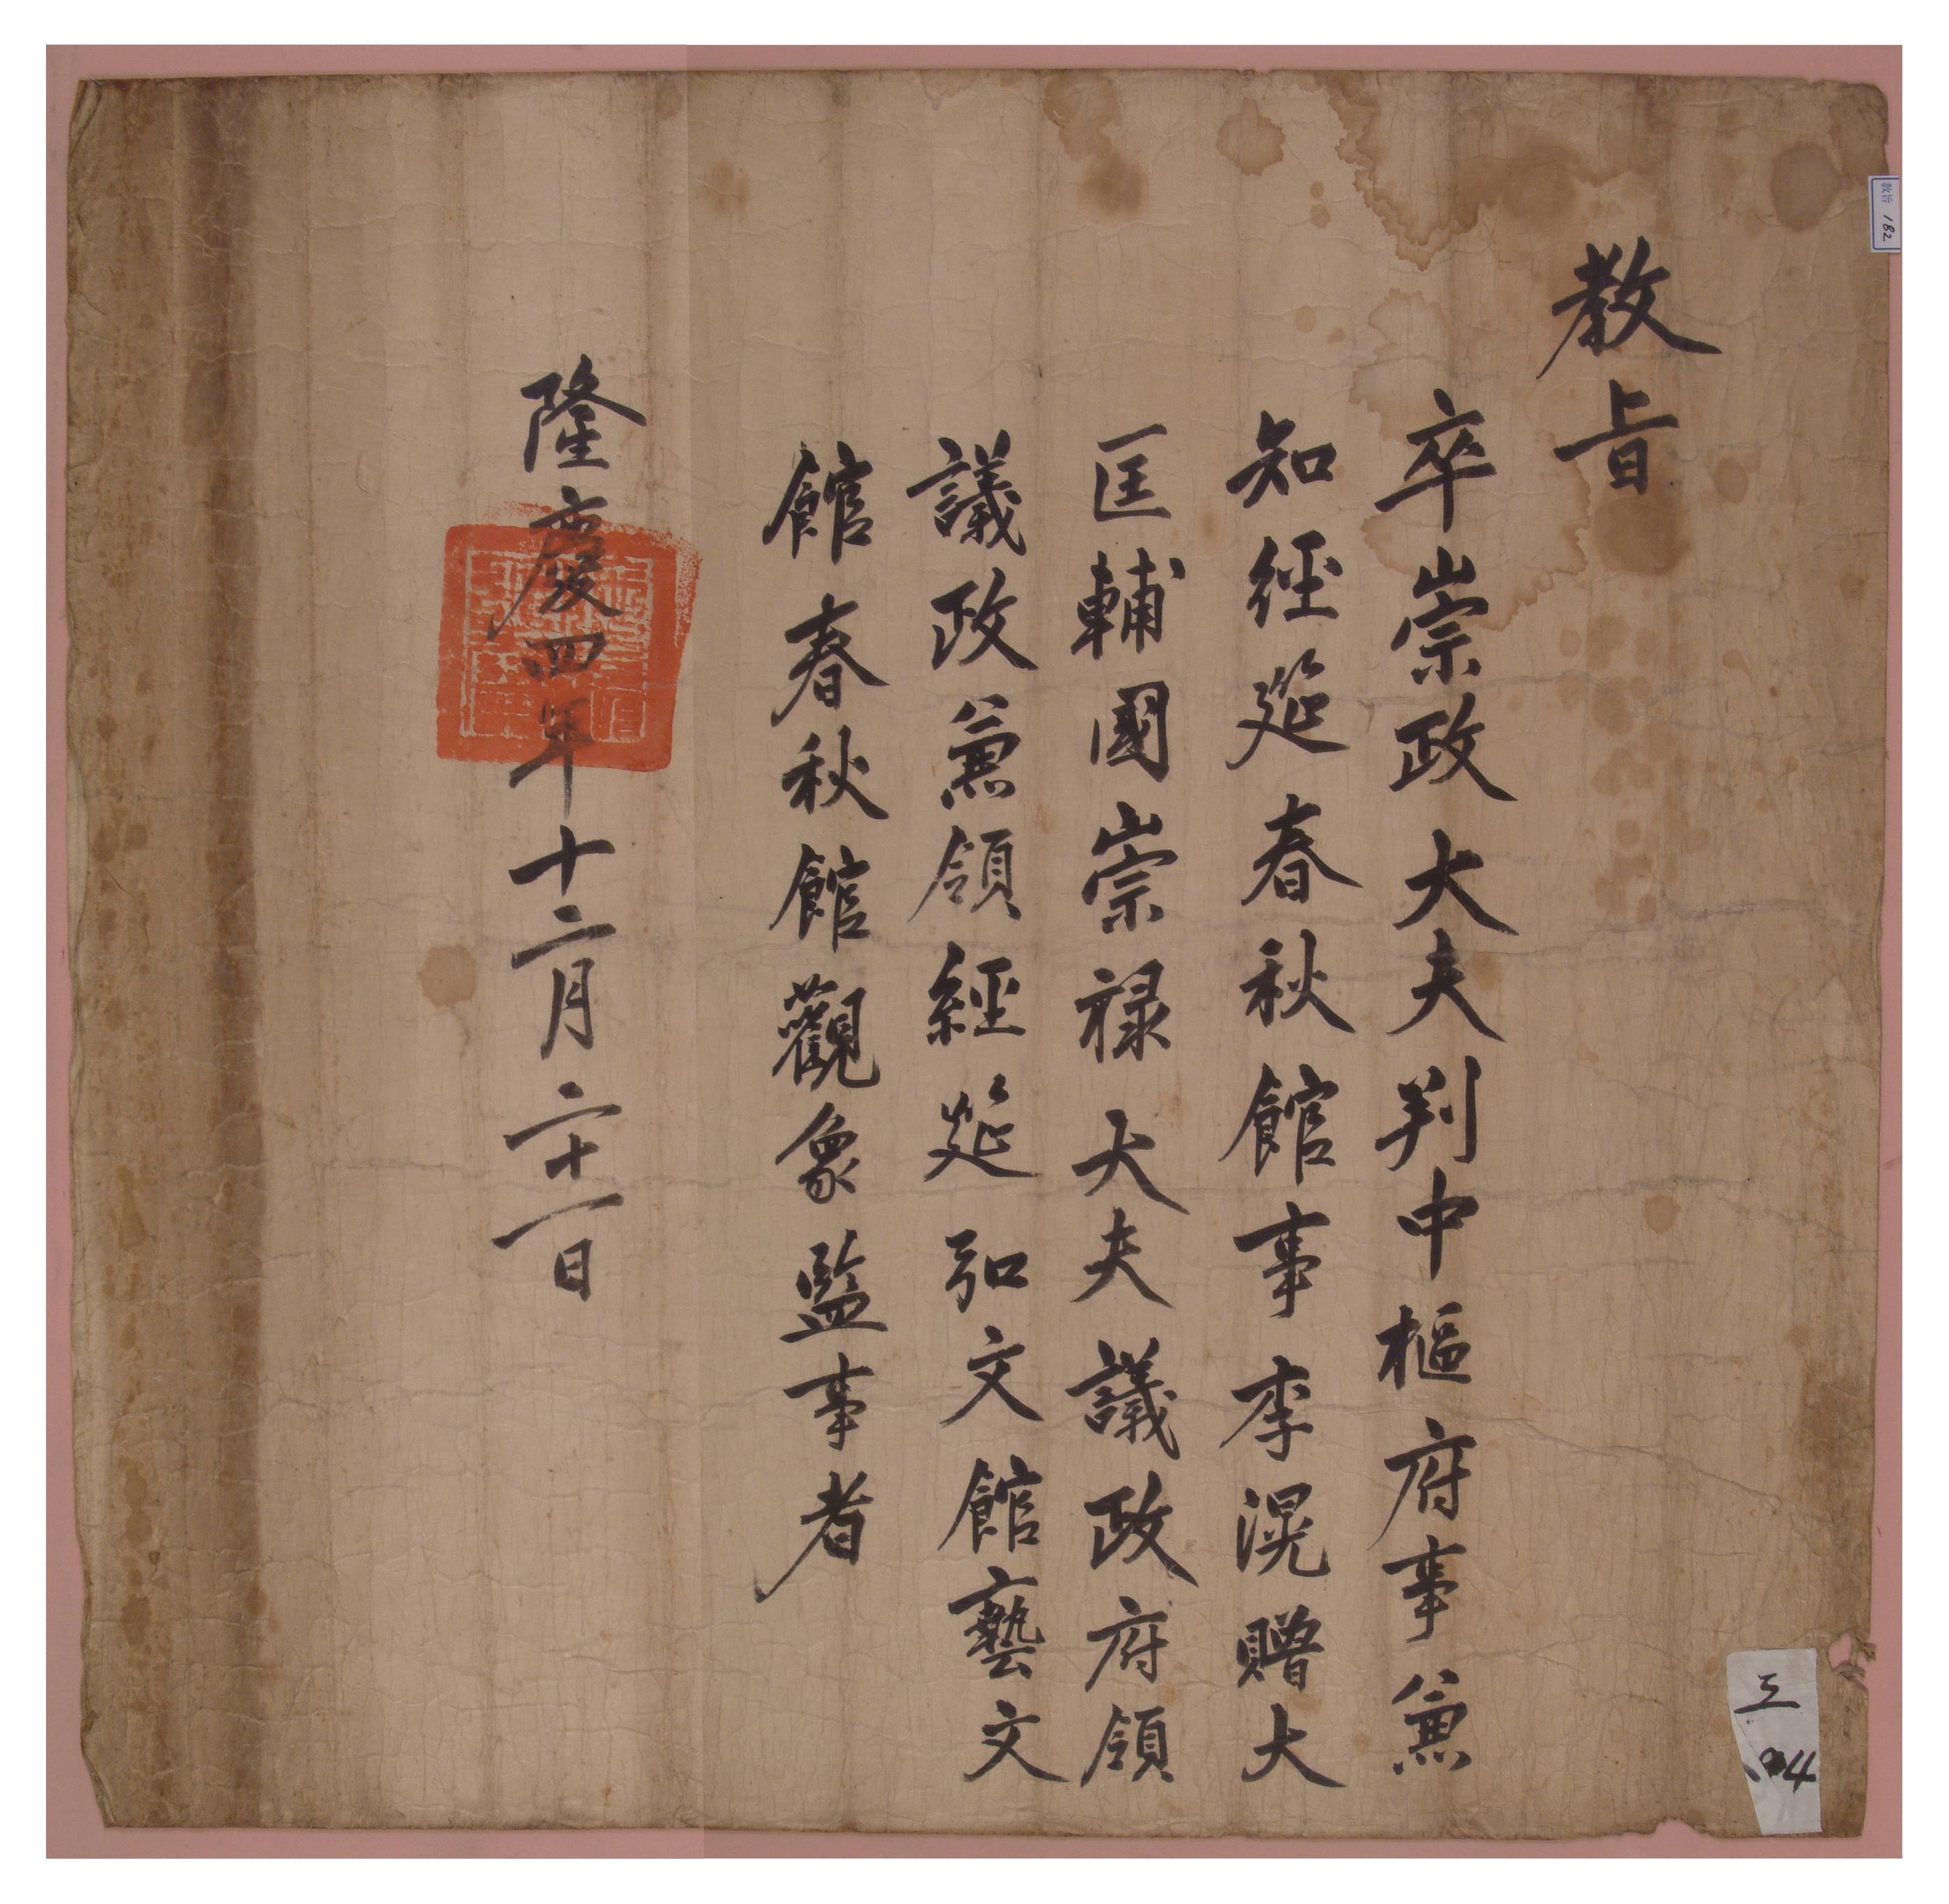 教旨
卒崇政大夫判中樞府事兼
知經筵春秋館事李滉贈大
匡輔國崇祿大夫議政府領
議政兼領經筵弘文館藝文
館春秋館觀象監事者
隆慶四年十二月二十一日
教旨 182